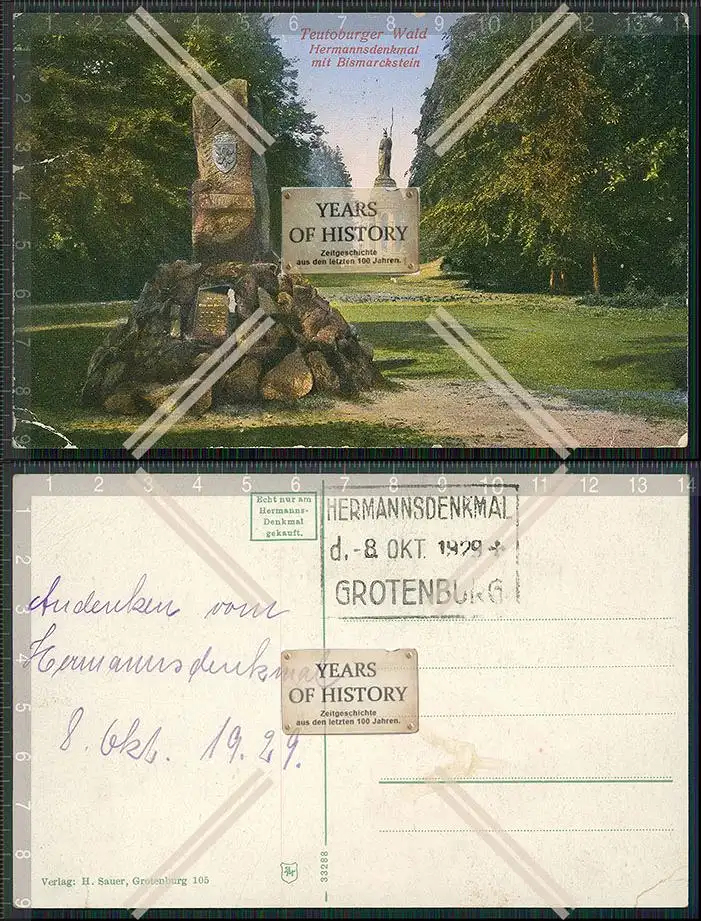 Teutoburger Wald
Hermannsdenkmal
mit Bismarckstein
YEARS
OF HISTORY
Zeitgeschichte
aus den letzten 100 Jahren.
Echt nur am
Hermanns-
Denkmal
gekauft.
HERMANNSDENKMAL
d. - 8. OKT. 1929 +
GROTENBURG
Andenken vom
Hermannsdenkmal
8. Okt. 19.29.
YEARS
OF HISTORY
Zeitgeschichte
aus den letzten 100 Jahren.
33288
Verlag: H. Sauer, Grotenburg 105